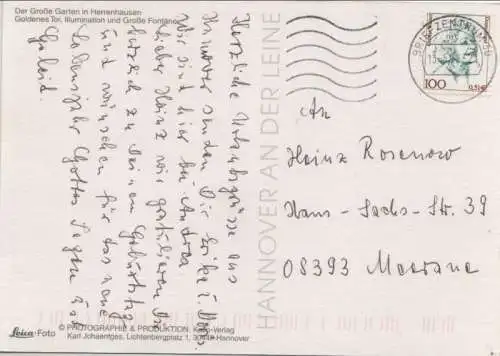 Der Große Garten in Herrenhausen
Goldenes Tor, Illumination und Große Fontäne
Herzliche Urlaubsgrüsse aus
Hannover senden Dir Erika u. Hans.
Wir sind hier bei Andrea
Lieber Heinz wir gratulieren Dir
herzlich zu deinem Geburtstag
und wünschen für das neue
Lebensjahr Gottes Segen u. sein
Geleit.
HANNOVER AN DER LEINE
BRIEFZENTRUM
100
0,51€
An
Heinz Rosenow
Hans-Sachs-Str. 39
08393 Meerane
Leica-Foto
© PHOTOGRAPHIE & PRODUKTION, Verlag
Karl Johaentges, Lichtenbergplatz 1, Hannover